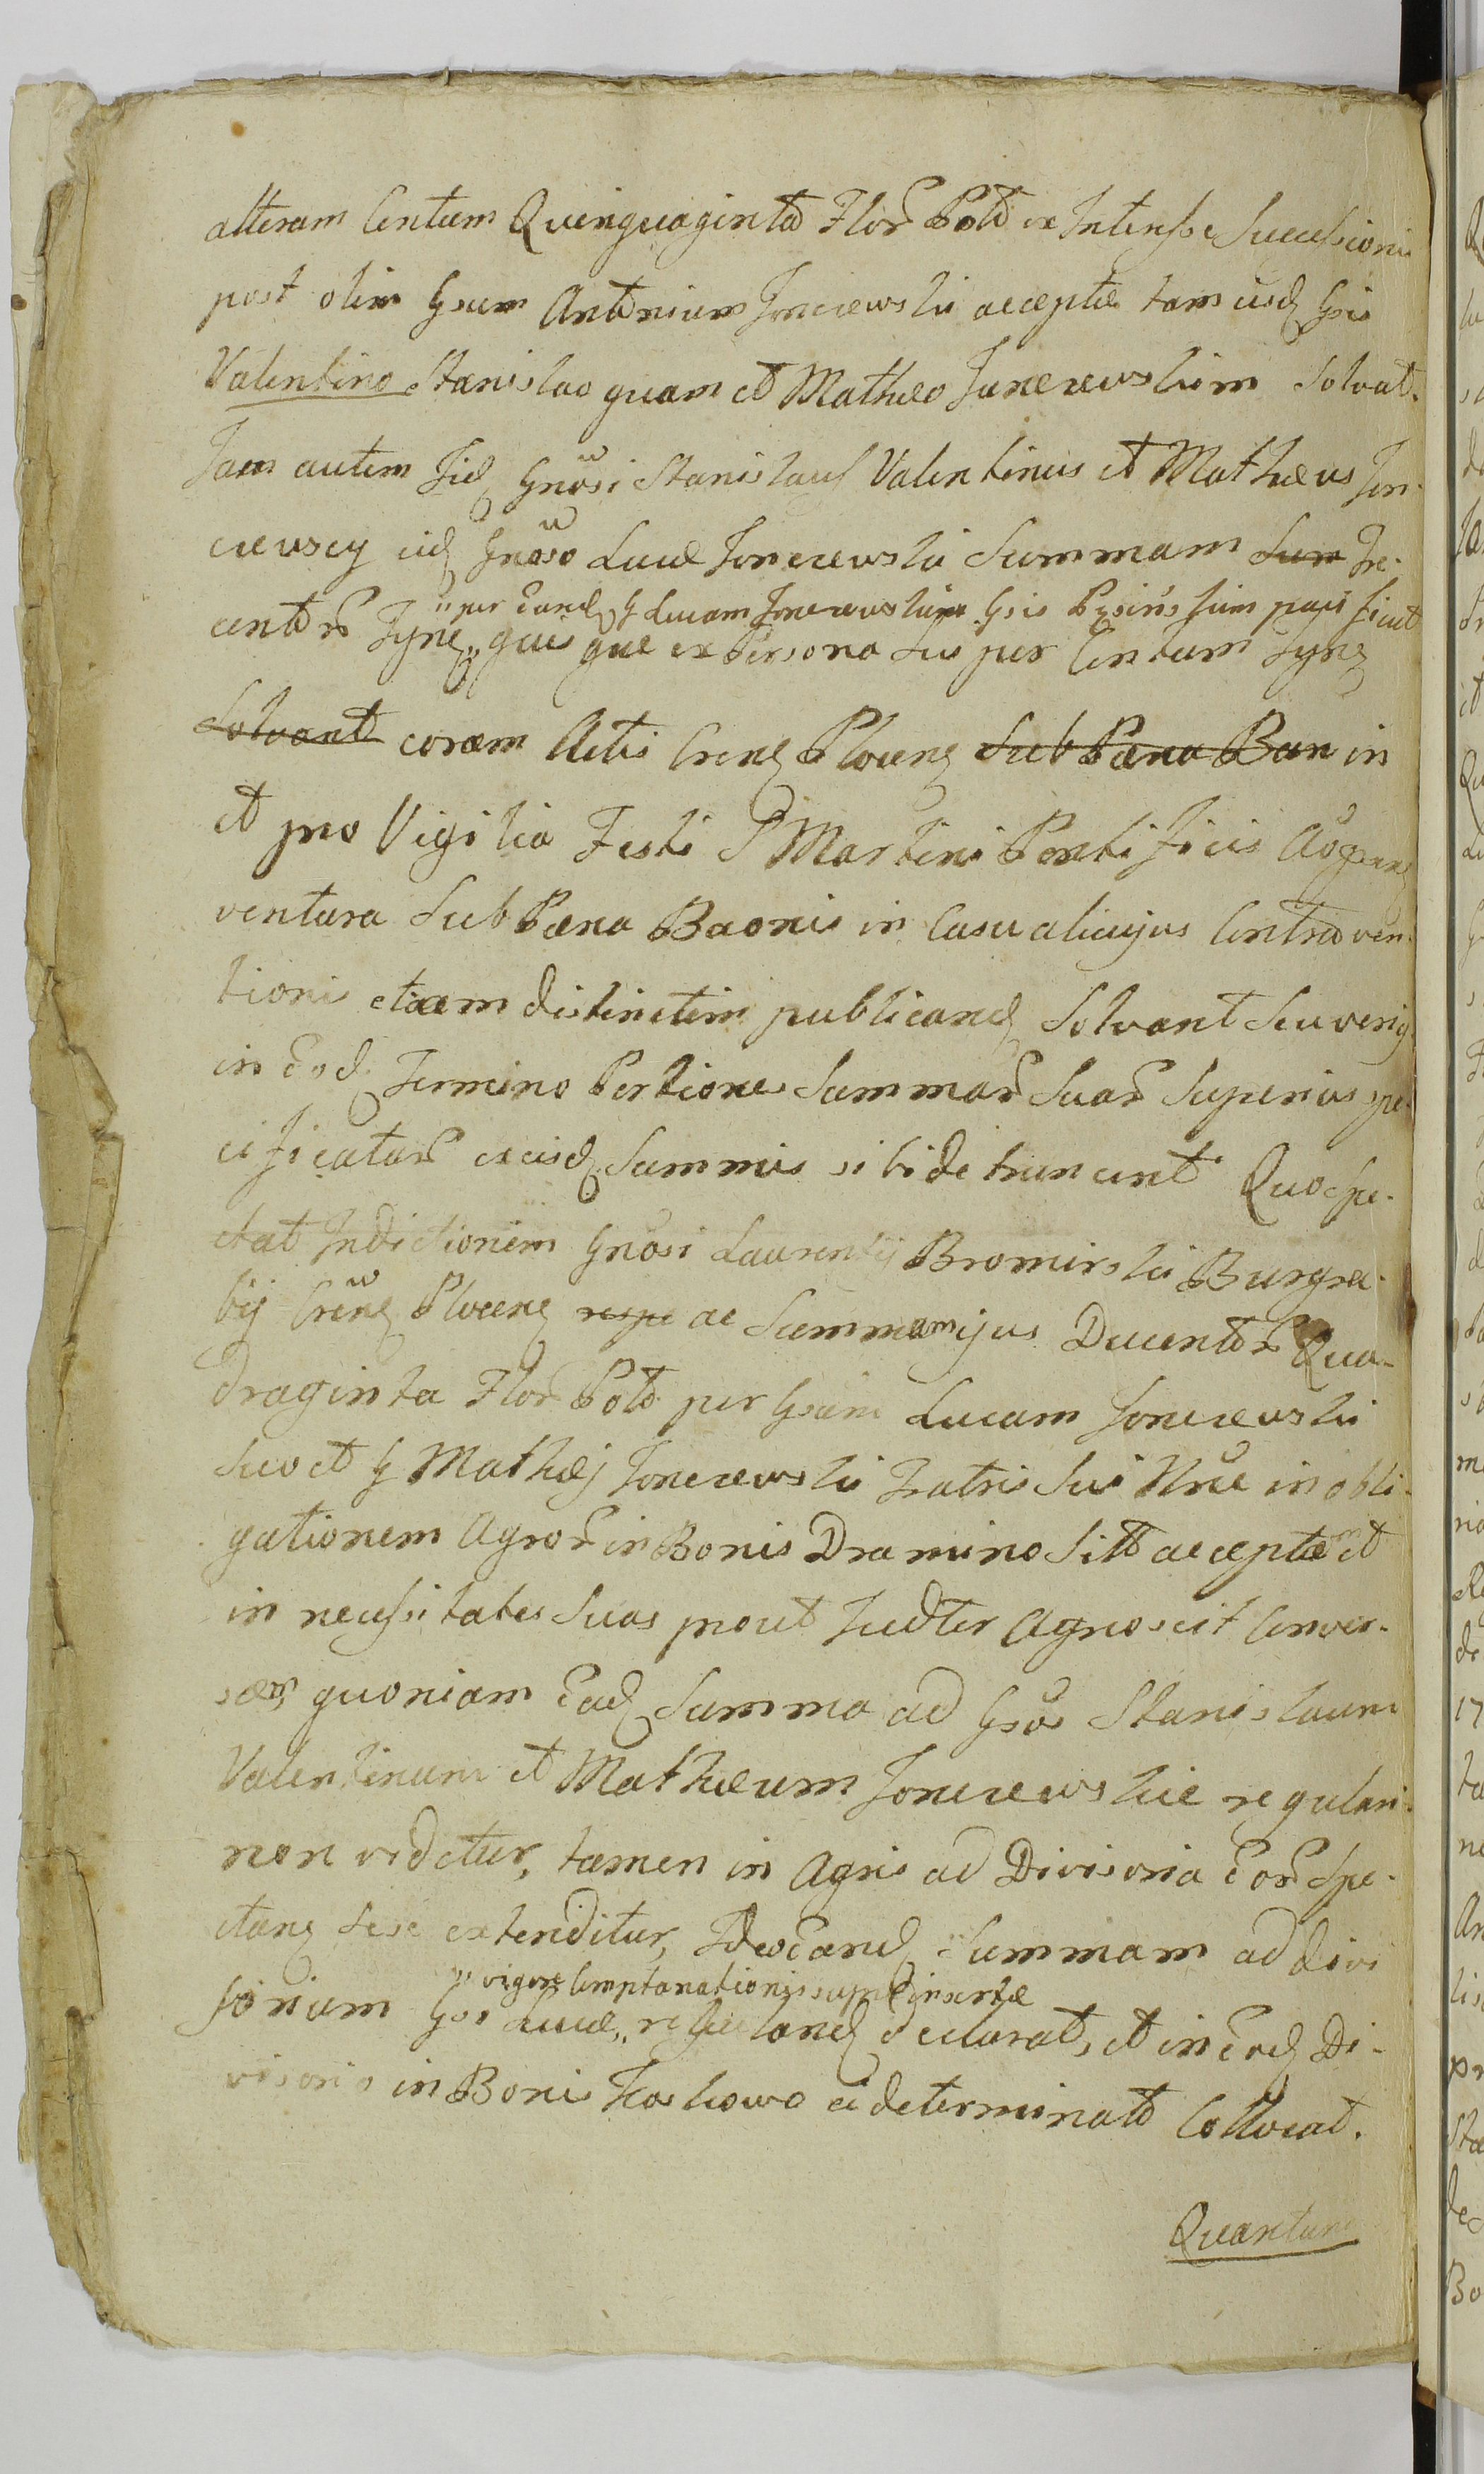 alteram Centum Quinquaginta Flor Pol ex Interesse Successionis
post olim Gsum Antonium Jonczewski acceptæ tam iisd Gsis
Valentino Stanislao quam et Mathæo Jonczewskim solvat.
Jam autem Jid Gnosi Stanislaus Valentinus et Mathæus Jon-
czewscy eid Gnoso Lucæ Jonczewski Summam Sum Tre-
" per eand G Lucam Jonczewskim Gsis
centor Tynf " quisque ex Persona sua per Centum Tynf
Solvant coram Actis Cren Plocen Sub Pæna Ban in
et pro Vigilia Festi S Martini Pontificis
ventura Sub Pæna Baonis in Casu alicujus Contraven-
tionis etiam distinctim publicand Solvant seu verius
in eod Termino Portiones Summar Suar Superius spe-
cificatar ex iisd Summis sibi detruncent Quo spe-
ctat Indictionem Gnosi Laurentij Bromirski Burgra-
bij Cren Plocen respe ac Summam ijus Ducentor Qua-
draginta Flor Pol per Gsum Lucam Jonczewski
suo et G Mathæj Jonczewski Fratris Sui Nne in obli-
gationem Agror in Bonis Dramino Sitt acceptam et
in necessitates Suas prout Judter Agnoscit Conver-
sam, quoniam ead Summa ad Gsos Stanislaum
Valentinum et Mathæum Jonczewskie regulari
non videtur, tamen in Agris ad Divisoria eor Spe-
ctan sese extenditur, Ideo eand Summam ad divi
" vigore Comptanationis supra insertæ
sorium Gsi Lucæ " declarat, et in eod Di-
visorio in Bonis Koskowo ei determinato Collocat.
Quantum